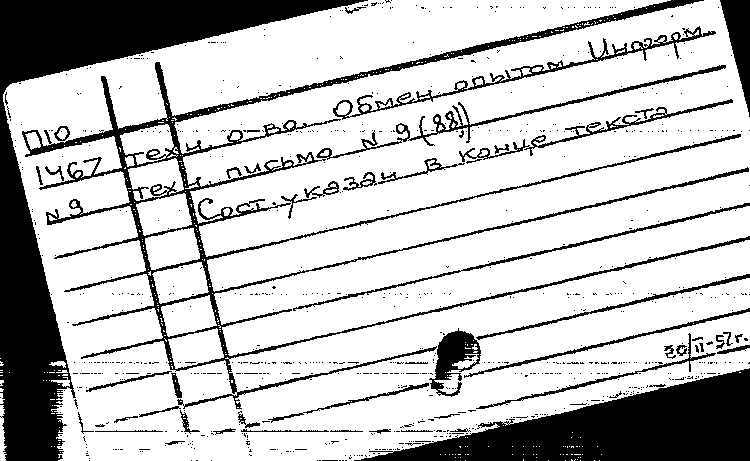 П10
1467
N 9
техн. о-во. Обмен опытом. Информ.
техн. письмо N 9 (88)
Сост. указан в конце текста
20/II-57г.